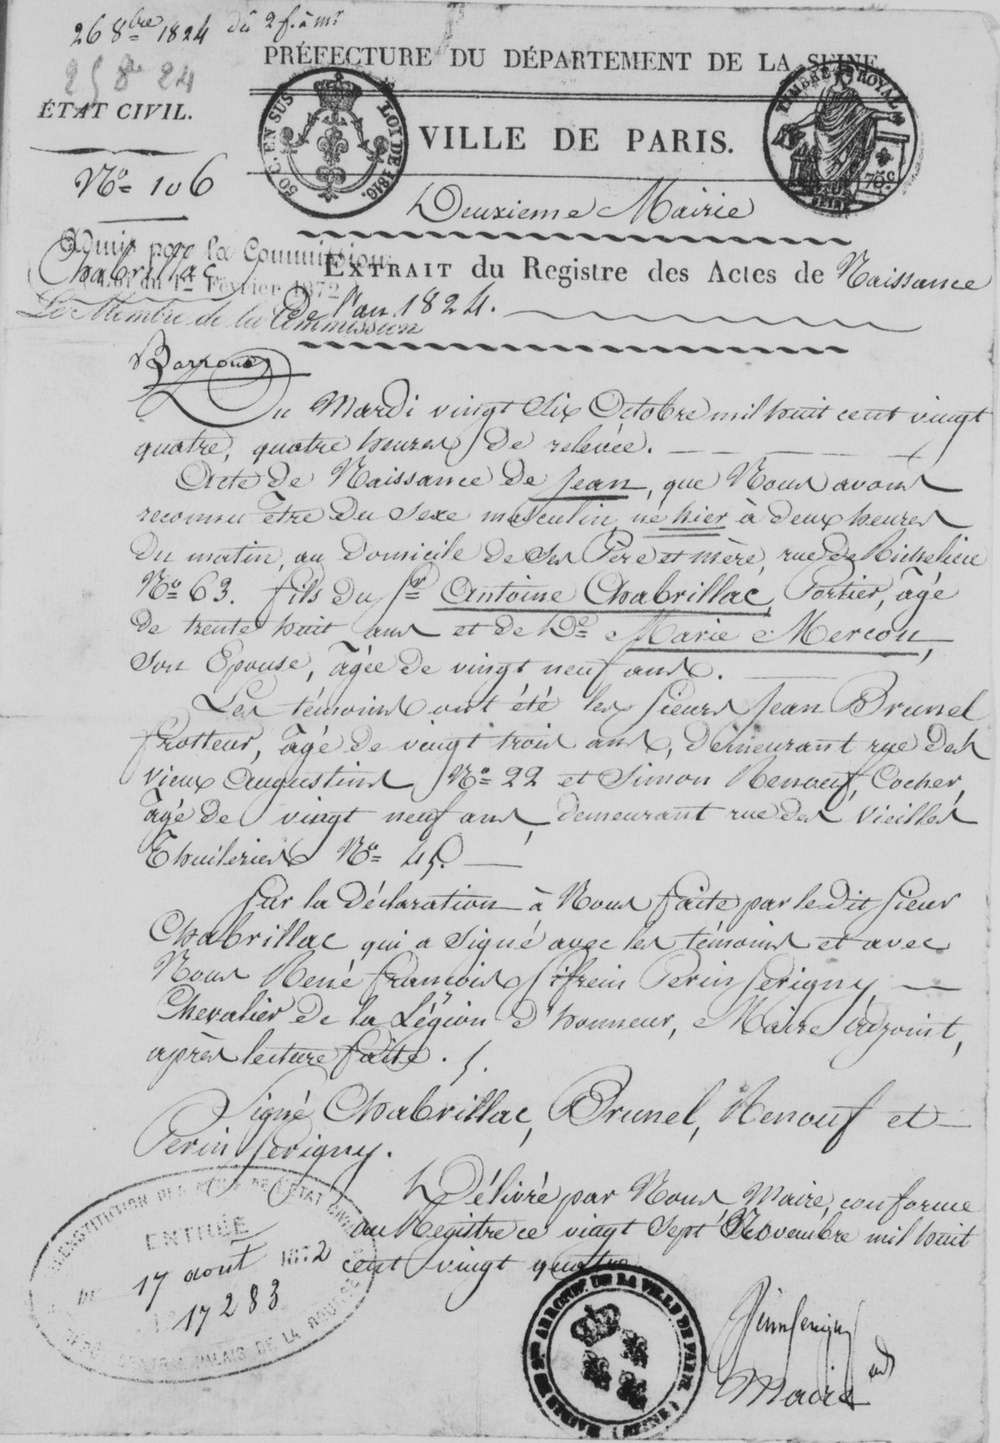 26 8bre 1824 du 2 f. à mr
25 8bre 24
PRÉFECTURE DU DÉPARTEMENT DE LA SEINE.
ÉTAT CIVIL.
50 C. EN SUS
LOI DE 1816.
TIMBRE ROYAL
75 C
SEINE
VILLE DE PARIS.
No 106
Deuxieme Mairie
Admis par la Commission
Chabrillac
Loi du 12 Février 1872
EXTRAIT du Registre des Actes de Naissance
De l'an 1824.
Le Membre de la Commission
Du Mardi vingt Six Octobre mil huit cent vingt
quatre, quatre heures de relevée.
Acte de Naissance de Jean, que Nous avons
reconnu être du sexe masculin, né hier à deux heures
du matin, au domicile de ses Père et mère, rue de Richelieu
No 63. fils du Sr Antoine Chabrillac, Portier, âgé
de trente huit ans et de De Marie Mercou,
son Epouse, âgée de vingt neuf ans.
Les témoins ont été les Sieurs Jean Brunel
frotteur, âgé de vingt trois ans, demeurant rue des
vieux Augustins No 22 et Simon Renouf, Cocher,
âgé de vingt neuf ans, demeurant rue des Vieilles
Thuileries No 45.
Sur la Déclaration à Nous faite par le dit Sieur
Chabrillac qui a signé avec les témoins et avec
Nous René francois Perin Serigny
Chevalier de la Légion d'honneur, Maire adjoint,
après lecture faite.
Signé Chabrillac, Brunel, Renouf et
Perin Serigny.
Délivré par Nous Maire, conforme
au Registre ce vingt Sept Novembre mil huit
cent vingt quatre
RECONSTITUTION DES ACTES DE L'ÉTAT CIVIL
ENTRÉE
17 aout 1872
17283
PALAIS DE LA BOURSE
MAIRIE DU 2me ARRONDT. DE LA VILLE DE PARIS
(SEINE)
Perin Serigny
Maire adt